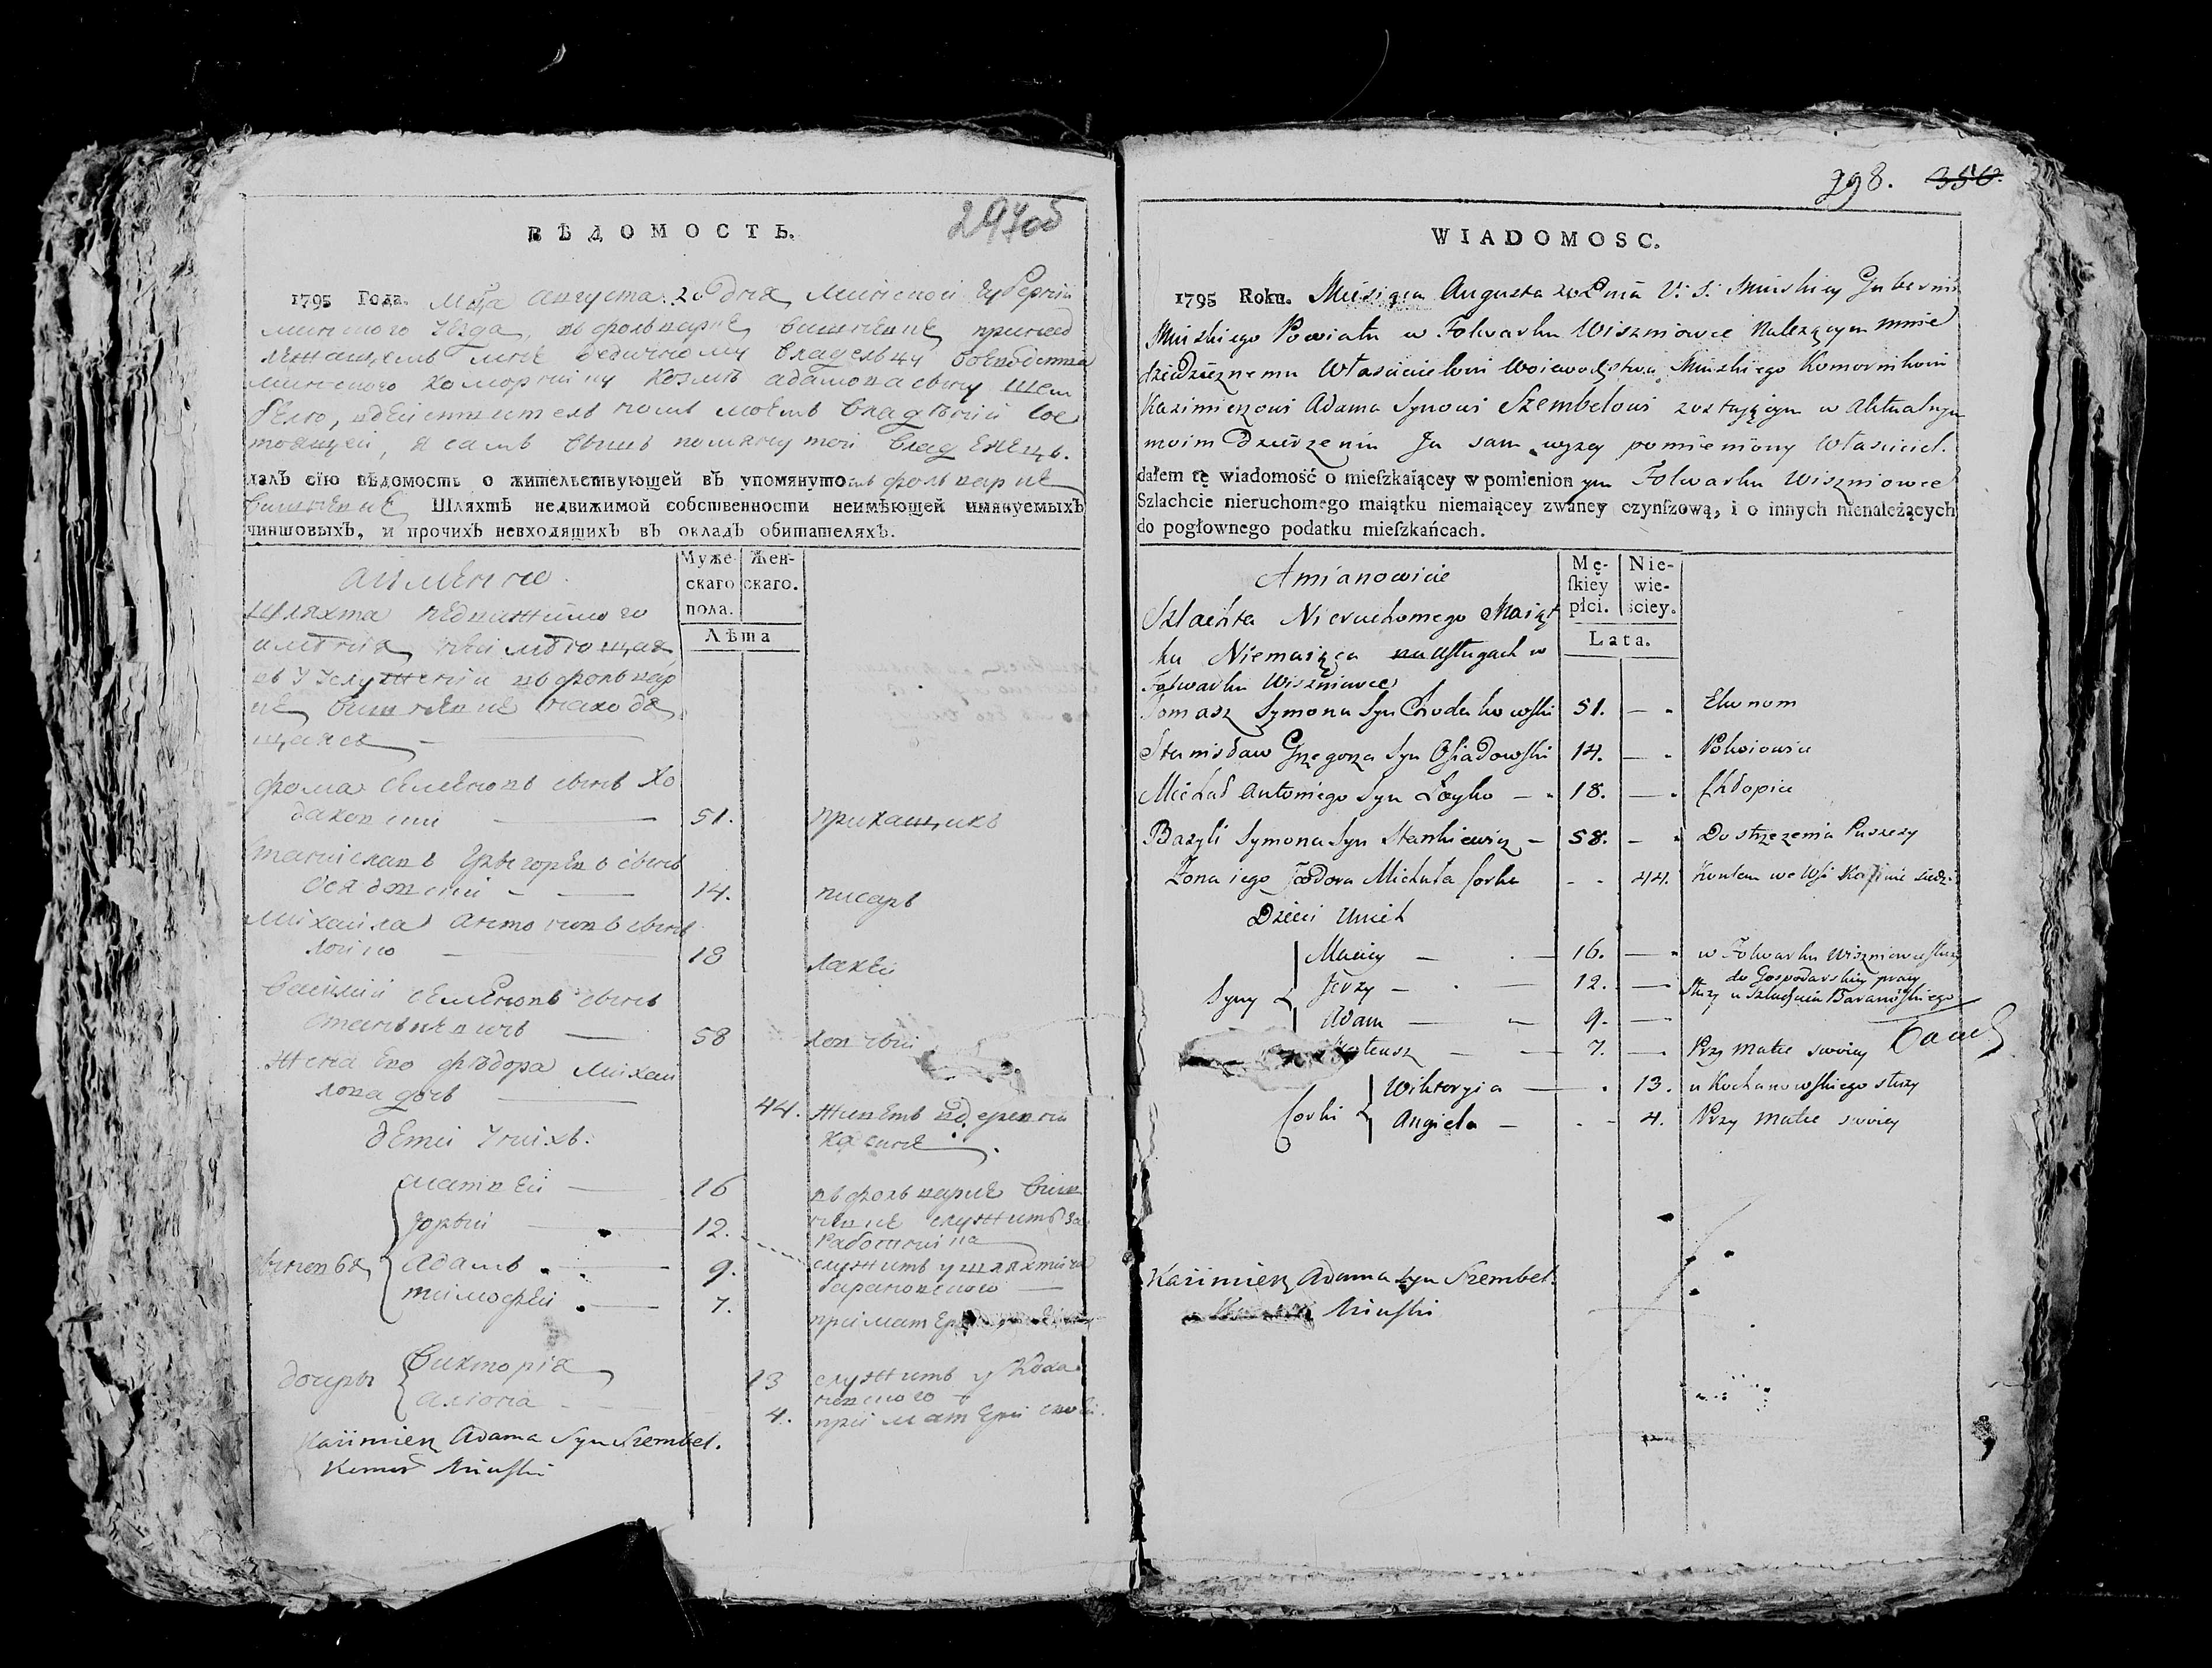 297об
ВѢДОМОСТЬ.
1795 Года. Мца августа 20 дня Минской губернии
Минского уезда, въ фольварке Вишневке принад
лежащемъ мне вотчинному владельцу воеводства
Минского коморнику адамова сыну Шем
белю, въ действителномъ моемъ владении сос
тоящей, я самъ выше помянутой владелецъ.
далъ сїю вѣдомость о жительствующей въ упомянутомъ фольварке
Вишневке Шляхтѣ недвижимой собственности неимѣющей имянуемыхъ
чиншовыхъ, и прочихъ невходящихъ въ окладъ обитателяхъ.
Муже- Жен-
скаго скаго.
пола.
Лѣта
аименно.
Шляхта недвижимого
имения неимѣющая
въ услужении въ фольвар
ке Вишневке находя
щаяся
Фома Семеновъ сынъ Хо
даковский 51. прикащикъ
Станиславъ Григорьевъ сынъ
Осядовский 14. писарь
Михайла Антоновъ сынъ
Лойко 18 лакей
Василий Семеновъ сынъ
Станкевичъ 58
жена его Федора Михай
лова дочь 44. живетъ в деревни
дети у нихъ.
Матвей 16 въ фольварке Виш
Юрый 12. невке служитъ за
работника
сыновья Адамъ 9. служитъ у шляхтича
Барановского
Тимофей 7. при матери
дочери Виктория 13 служитъ у Коха
новского
4. при матери своей.
Kazimierz Adama Syn Szembel.
Komor Miński
298. 350.
WIADOMOSC.
1795 Roku. Miesiąca Augusta 20 Dnia V. S. Minskiey Gubernii
Minskiego Powiatu w Folwarku Wiszniowce Należącym mnie
dziedzicznemu Włascicielowi Woiewodztwa Minskiego Komornikowi
Kazimierzowi Adama Synowi Szembelowi zostaiącym w Aktualnym
moim Dzierzeniu Ja sam wyzey pomieniony Własciciel.
dałem tę wiadomość o mieſzkaiącey w pomienionym Folwarku Wiszniowce
Szlachcie nieruchomego maiątku niemaiącey zwaney czynſzową, i o innych nienależących
do pogłownego podatku mieſzkańcach.
Mę- Nie-
ſkiey wie-
płci. ściey.
Lata.
Amianowicie
Szlachta Nieruchomego Maiąt
ku Niemaiąca na usługach w
Folwarku Wiszniowce
Tomasz Symona Syn Chodakowski 51. Ekonom
Stanisław Grzegorza Syn Osiadowski 14. Pokoiowiec
Michał Antoniego Syn Łoyko 18. Chłopiec
Bazyli Symona Syn Stankiewicz 58. Do strzezenia Puszczy
Zona iego Teodora Michała Corka 44. Kontem we Wsi
Dzieci Unich
Maciey 16. w Folwarku Wiszniowce służy
do Gospodarskiey pracy
Syny Jerzy 12. Służy u Szlachcica Baranowskiego
Adam 9.
7. Przy Matce swoiey
Wiktoryia 13. u Kochanowskiego służy
Corki Angiela 4. Przy Matce swoiey
Kazimierz Adama Syn Szembel.
Miński